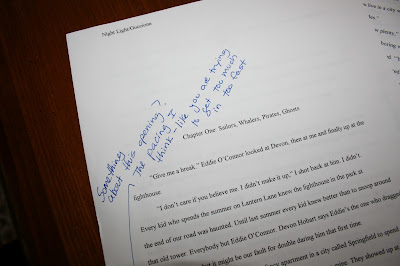 Night Light/Guisiona
Something
about this opening?
The pacing I
think - like you are trying
to get too much
in too fast
Chapter One Sailors, Whalers, Pirates, Ghosts
"Give me a break." Eddie O'Connor looked at Devon, then at me and finally up at the
lighthouse.
"I don't care if you believe me. I didn't make it up." I shot back at him. I didn't.
Every kid who spends the summer on Lantern Lane knew the lighthouse in the park at
the end of our road was haunted. Until last summer every kid knew better than to snoop around
that old tower. Everybody but Eddie O'Connor. Devon Hobart says Eddie's the one who dragged
but it might be our fault for double daring him that first time.
apartment in a city called Springfield to spend
They showed up at
live in a city